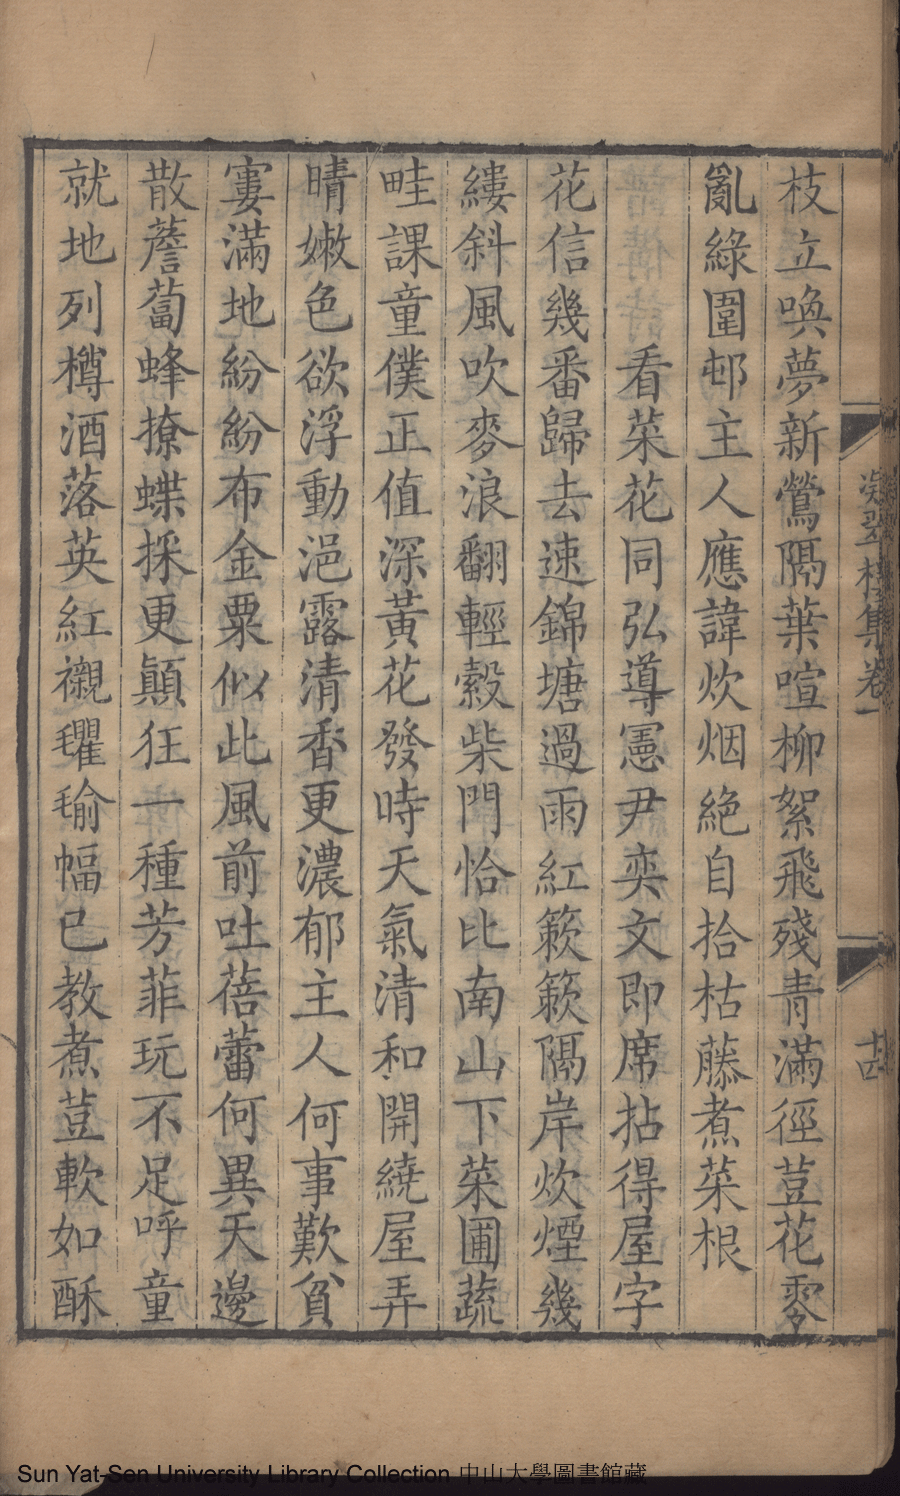 枝立喚夢新鶯隔葉喧柳絮飛殘青滿徑荳花零
亂綠圍邨主人應諱炊烟絕自拾枯藤煮菜根
看菜花同弘導憲尹奕文即席拈得屋字
花信幾番歸去速錦塘過雨紅簌簌隔岸炊煙幾
縷斜風吹麥浪翻輕縠柴門恰比南山下菜圃蔬
畦課童僕正值深黃花發時天氣清和開繞屋弄
晴嫩色欲浮動浥露清香更濃郁主人何事歎貧
寠滿地紛紛布金粟似此風前吐蓓蕾何異天邊
散薝蔔蜂撩蝶採更顛狂一種芳菲玩不足呼童
就地列樽酒落英紅襯氍毹幅已教煮荳軟如酥
凝翠樓集卷一
十四
Sun Yat-Sen University Library Collection 中山大學圖書館藏